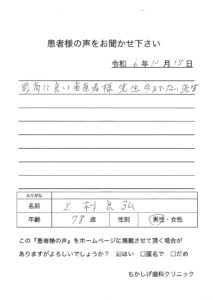 患者様の声をお聞かせ下さい
令和 6年 10月 15日
最高に良い歯医者様 先生 今までない先生
ふりがな
名前 上村良弘
年齢 78歳 性別 男性・女性
この『患者様の声』をホームページに掲載させて頂く場合が
ありますがよろしいでしょうか? ☑はい □匿名で □だめ
ちかしげ歯科クリニック